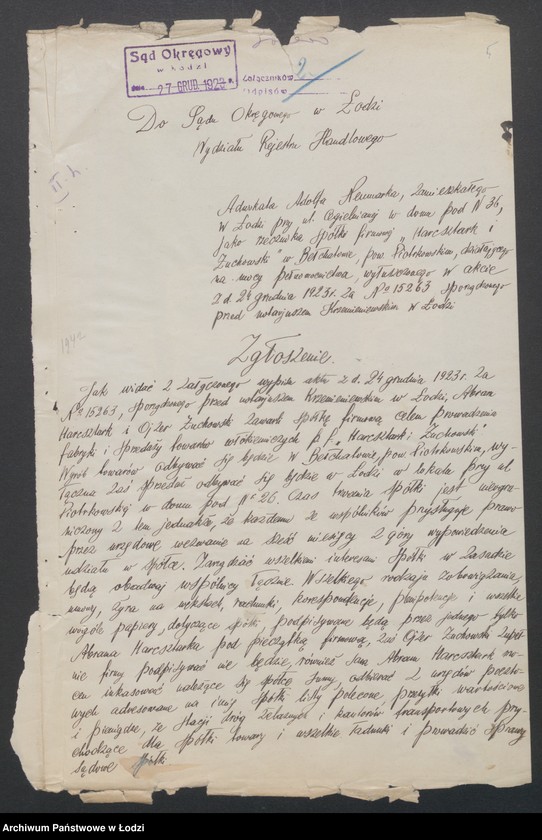 5
Sąd Okręgowy
w Łodzi
dnia 27 GRUD. 1923 r.
Załączników 2
Odpisów
Do Sądu Okręgowego w Łodzi
Wydziału Rejestru Handlowego
Adwokata Adolfa Neumarka, zamieszkałego
w Łodzi przy ul. Cegielnianej w domu pod N 36,
jako rzecznika spółki firmowej „Harcsztark i
Żuchowski" w Bełchatowie, pow. Piotrkowskim, działającego
na mocy pełnomocnictwa, wyłuszczonego w akcie
z d. 24 grudnia 1923 r. za No 15263 sporządzonego
przed notarjuszem Krzemieniewskim w Łodzi
Zgłoszenie.
Jak widać z załączonego wypisu aktu z d. 24 grudnia 1923 r. za
No 15263, sporządzonego przed notarjuszem Krzemieniewskim w Łodzi, Abram
Harcsztark i Ojzer Żuchowski zawarli spółkę firmową celem prowadzenia
fabryki i sprzedaży towarów włókienniczych p. f. „Harcsztark i Żuchowski"
Wyrób towarów odbywać się będzie w Bełchatowie, pow. Piotrkowskim, wy-
łączna zaś sprzedaż odbywać się będzie w Łodzi w lokalu przy ul.
Piotrkowskiej w domu pod No 26. Czas trwania spółki jest nieogra-
niczony z tem jednakże, że każdemu ze wspólników przysługuje prawo
przez urzędowe wezwanie na sześć miesięcy z góry wypowiedzenia
udziału w spółce. Zarządzać wszelkimi interesami spółki w zasadzie
będą obadwaj wspólnicy łącznie. Wszelkiego rodzaju zobowiązania,
umowy, żyra na wekslach, rachunki, korespondencje, plenipotencje i wszelkie
wogóle papiery, dotyczące spółki, podpisywane będą przez jednego tylko
Abrama Harcsztarka pod pieczątką firmową, zaś Ojzer Żuchowski zupeł-
nie firmy podpisywać nie będzie, również sam Abram Harcsztark mo-
cen inkasować należące się spółce sumy, odbierać z urzędów poczto-
wych adresowane na imię spółki listy polecone, przesyłki wartościowe
i pieniężne, ze stacji dróg żelaznych i kantorów transportowych przy-
chodzące dla spółki towary i wszelkie ładunki i prowadzić sprawy
sądowe spółki
Archiwum Państwowe w Łodzi